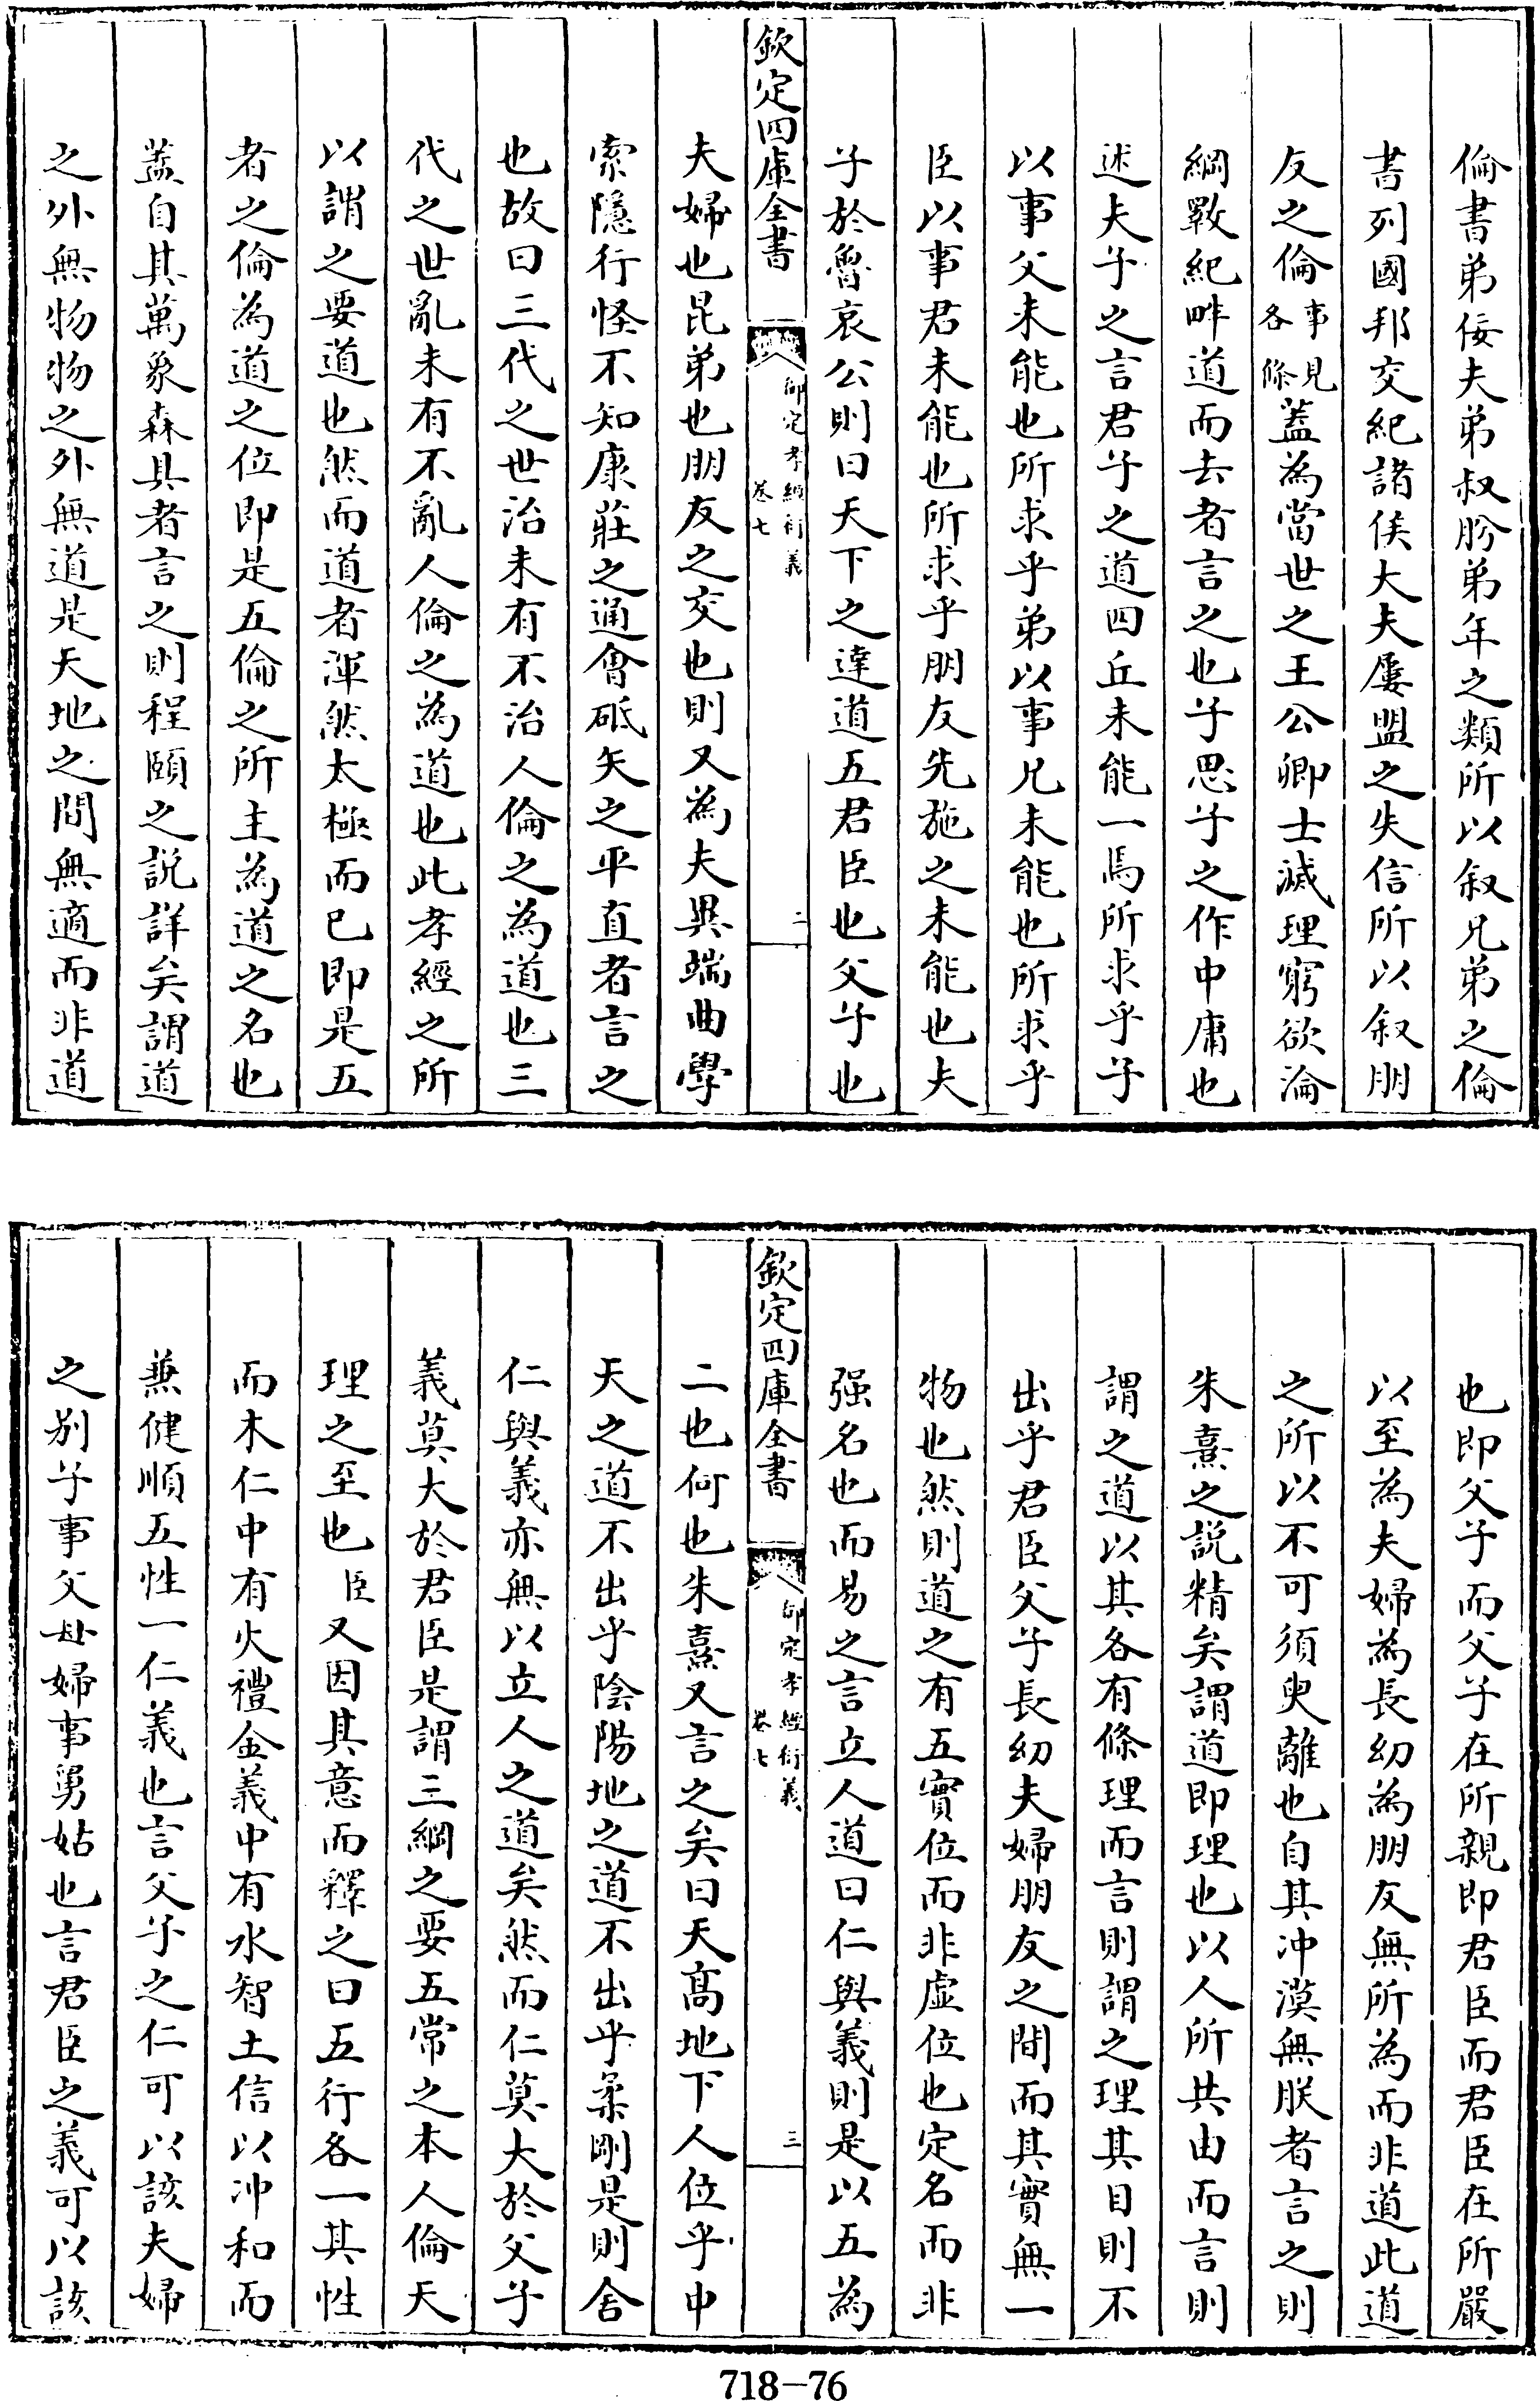 倫書弟佞夫弟叔肸弟年之類所以叙兄弟之倫
書列國邦交紀諸侯大夫屢盟之失信所以叙朋
友之倫事見各條蓋為當世之王公卿士滅理窮欲淪
綱斁紀畔道而去者言之也子思子之作中庸也
述夫子之言君子之道四丘未能一焉所求乎子
以事父未能也所求乎弟以事兄未能也所求乎
臣以事君未能也所求乎朋友先施之未能也夫
子於魯哀公則曰天下之達道五君臣也父子也
欽定四庫全書
御定孝經衍義
卷七
二
夫婦也昆弟也朋友之交也則又為夫異端曲學
索隱行怪不知康莊之通會砥矢之平直者言之
也故曰三代之世治未有不治人倫之為道也三
代之世亂未有不亂人倫之為道也此孝經之所
以謂之要道也然而道者渾然太極而已即是五
者之倫為道之位即是五倫之所主為道之名也
蓋自其萬象森具者言之則程頤之説詳矣謂道
之外無物物之外無道是天地之間無適而非道
也即父子而父子在所親即君臣而君臣在所嚴
以至為夫婦為長幼為朋友無所為而非道此道
之所以不可須臾離也自其冲漠無朕者言之則
朱熹之説精矣謂道即理也以人所共由而言則
謂之道以其各有條理而言則謂之理其目則不
出乎君臣父子長幼夫婦朋友之間而其實無一
物也然則道之有五實位而非虚位也定名而非
强名也而易之言立人道曰仁與義則是以五為
欽定四庫全書
御定孝經衍義
卷七
三
二也何也朱熹又言之矣曰天髙地下人位乎中
天之道不出乎陰陽地之道不出乎柔剛是則舍
仁與義亦無以立人之道矣然而仁莫大於父子
義莫大於君臣是謂三綱之要五常之本人倫天
理之至也臣又因其意而釋之曰五行各一其性
而木仁中有火禮金義中有水智土信以冲和而
兼健順五性一仁義也言父子之仁可以該夫婦
之别子事父母婦事舅姑也言君臣之義可以該
718-76